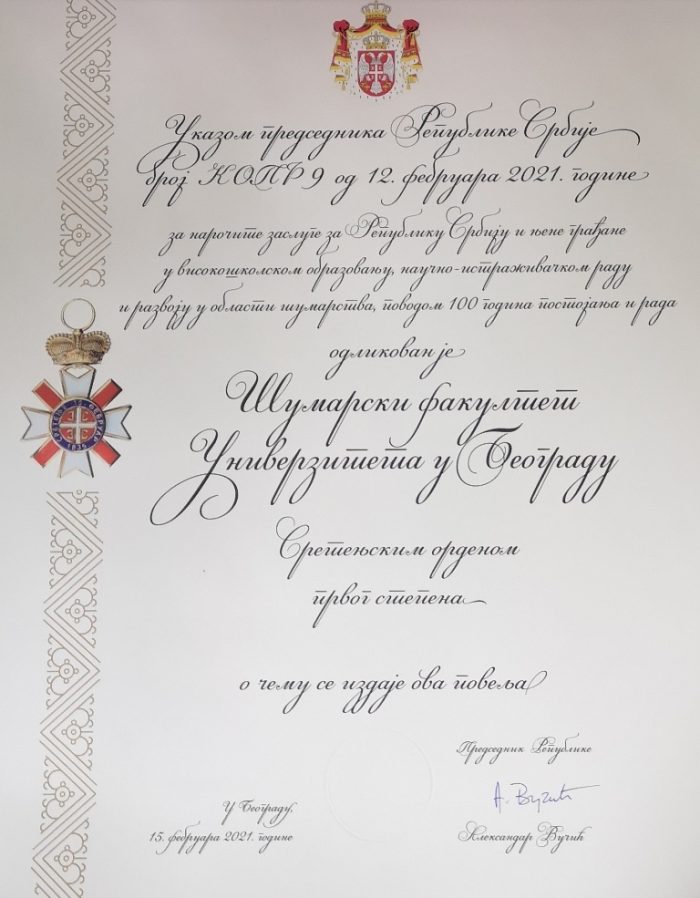 Указом председника Републике Србије
број КОПР 9 од 12. фебруара 2021. године
за нарочите заслуге за Републику Србију и њене грађане
у високошколском образовању, научно-истраживачком раду
и развоју у области шумарства, поводом 100 година постојања и рада
одликован је
Шумарски факултет
Универзитета у Београду
Сретењским орденом
првог степена
о чему се издаје ова повеља
Председник Републике
А. Вучић
У Београду,
15. фебруара 2021. године
Александар Вучић
СРЕТЕЊЕ 15 ФЕБРУАР 1835